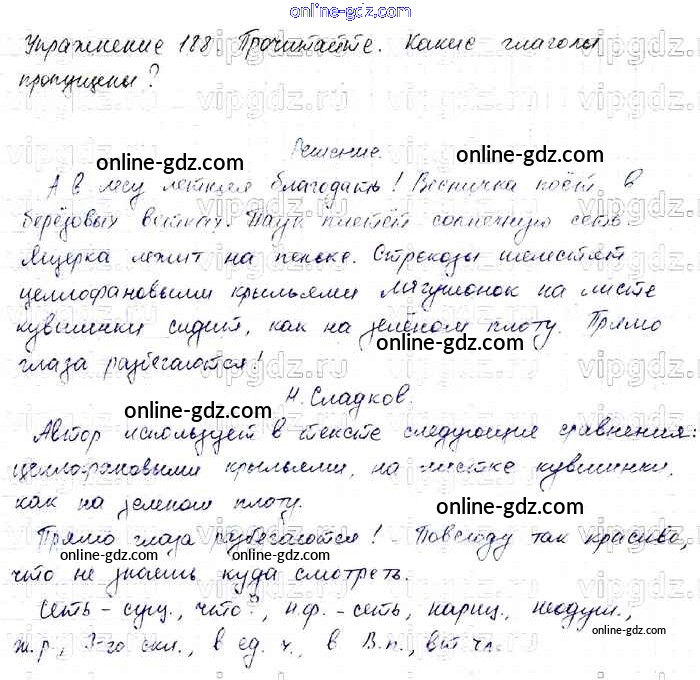 online-gdz.com
Упражнение 188. Прочитайте. Какие глаголы
пропущены?
Решение.
А в лесу летняя благодать! Весничка поёт в
берёзовых ветках. Паук плетёт солнечную сеть.
Ящерка лежит на пеньке. Стрекозы шелестят
целлофановыми крыльями. Лягушонок на листе
кувшинки сидит, как на зелёном плоту. Прямо
глаза разбегаются!
Н. Сладков.
Автор использует в тексте следующие сравнения:
целлофановыми крыльями, на листке кувшинки,
как на зеленом плоту.
Прямо глаза разбегаются! - Повсюду так красиво,
что не знаешь куда смотреть.
Сеть - сущ., что?, н.ф. - сеть, нариц., неодуш.,
ж.р., 3-го скл., в ед. ч., в В.п., вт. чл.